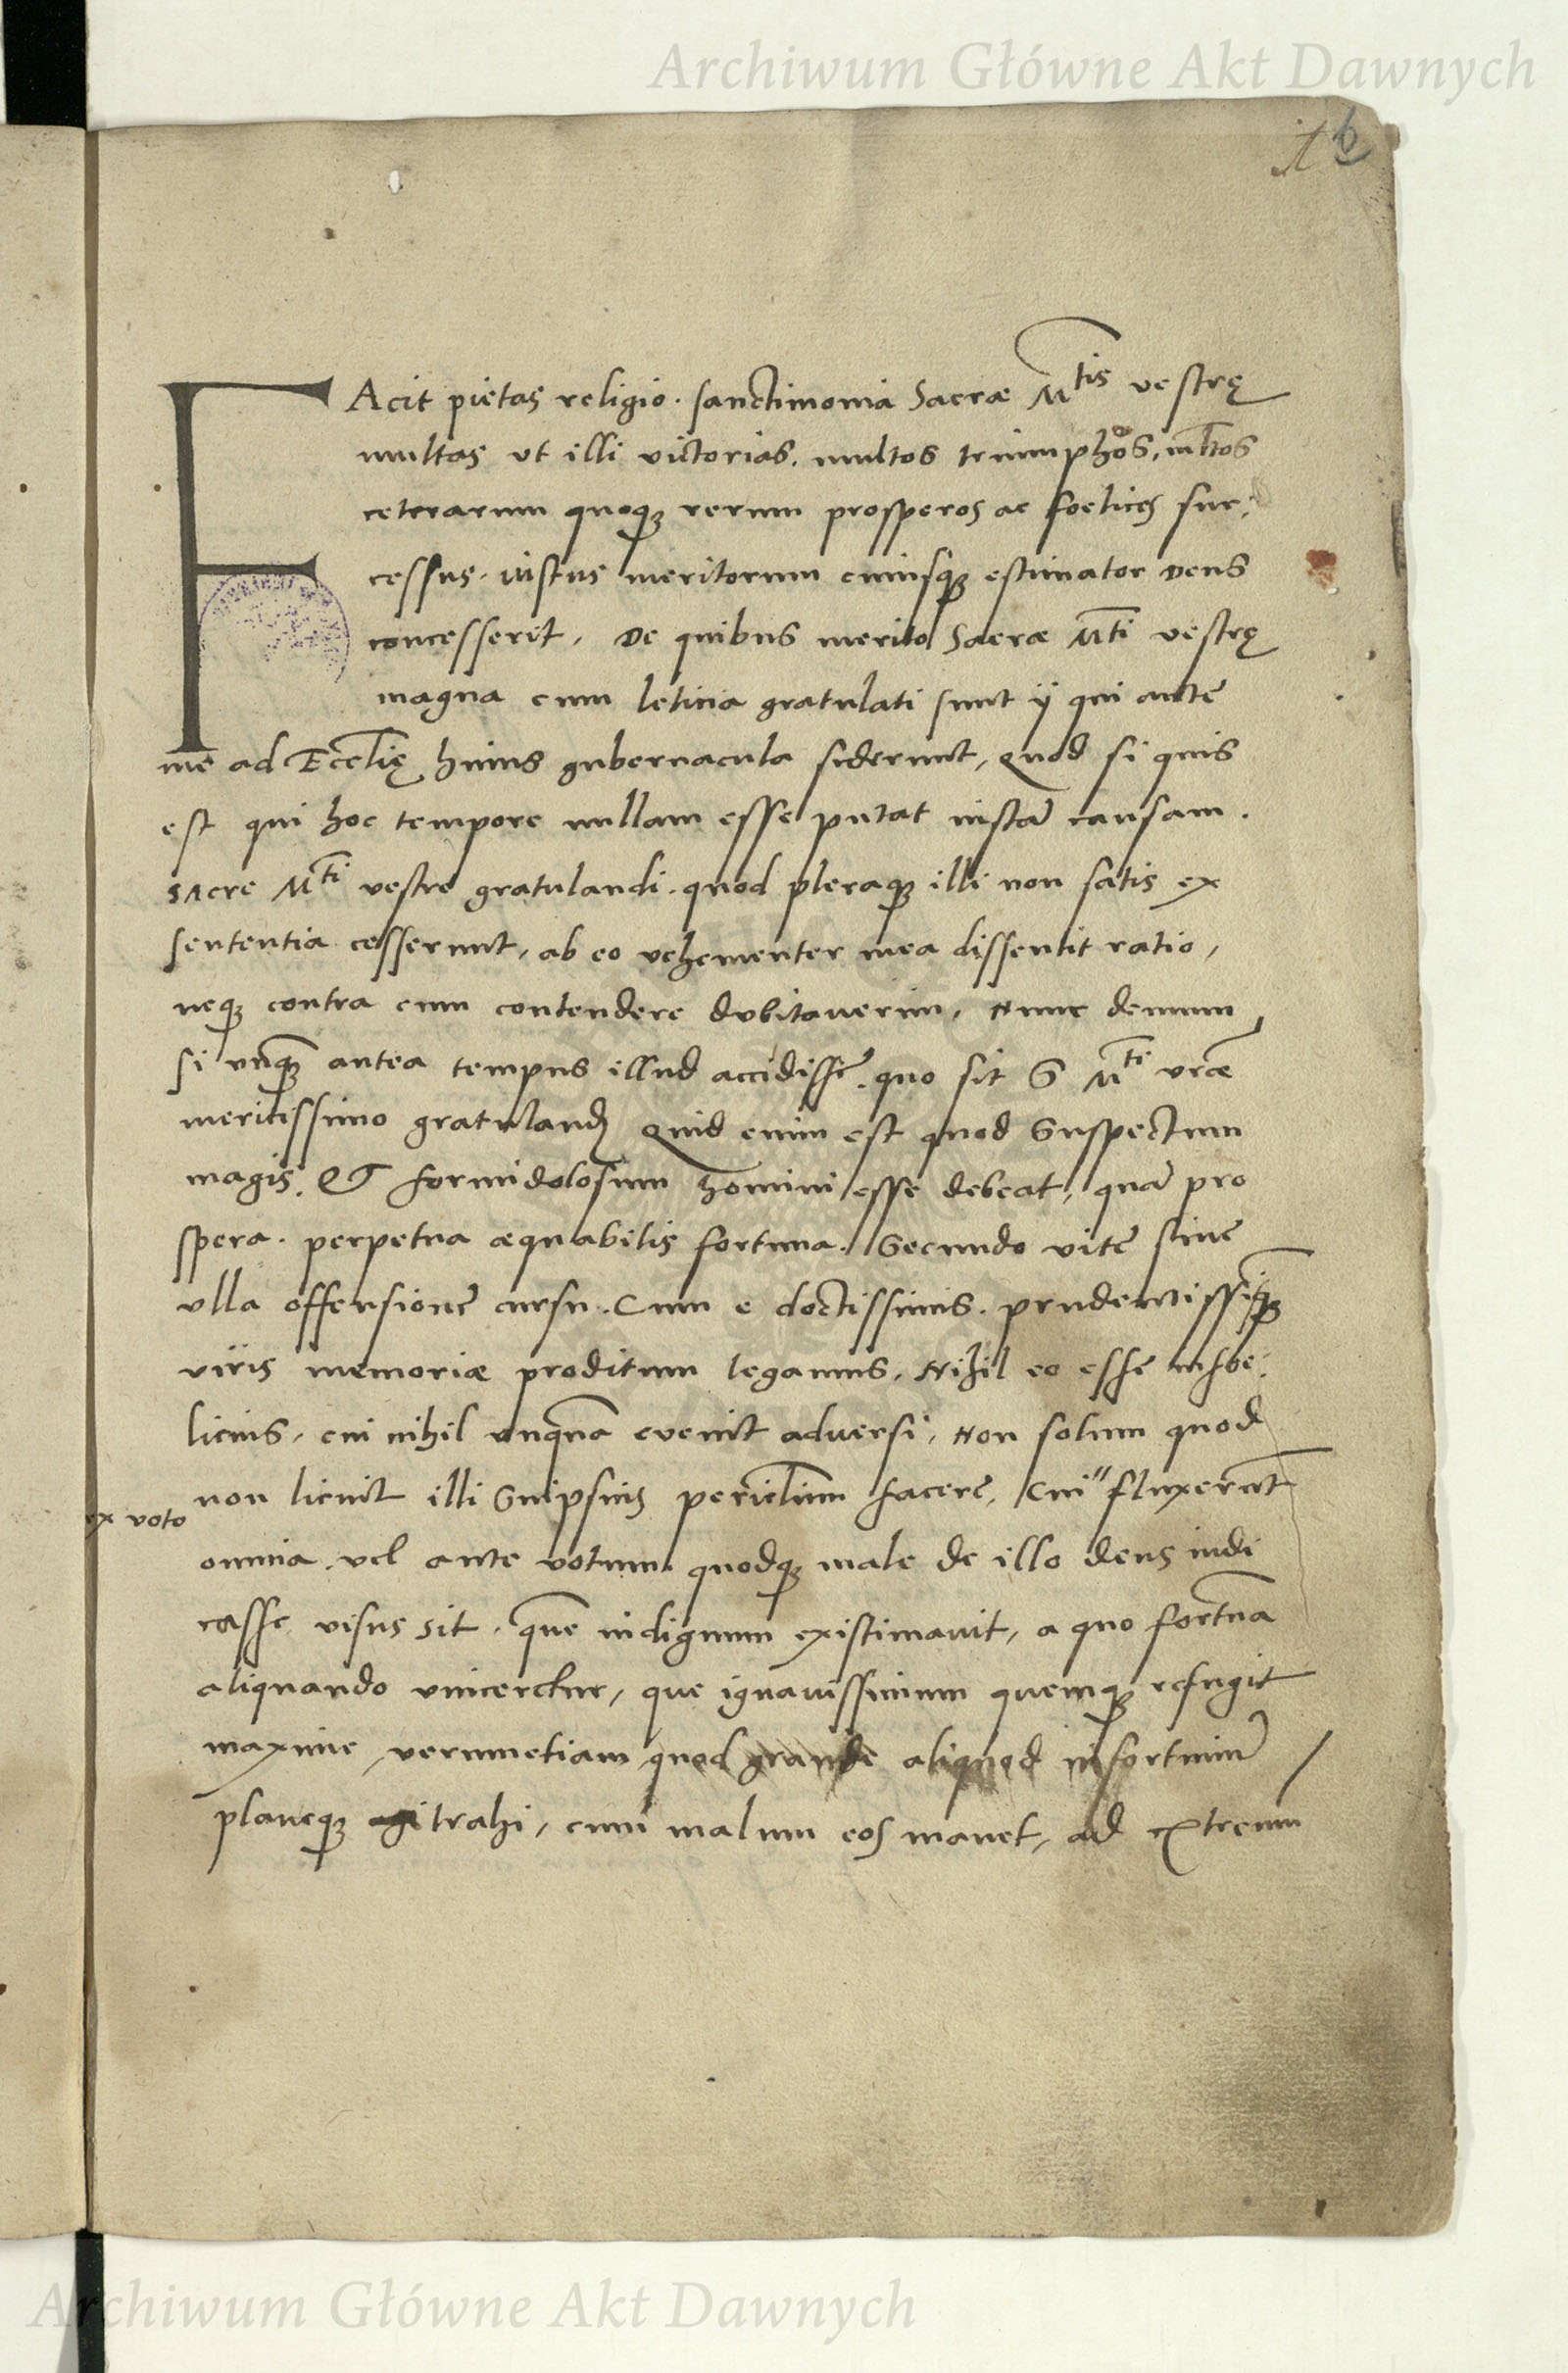 Archiwum Główne Akt Dawnych
FAcit pietas religio. sanctimonia Sacræ Mtis vestrę
multas ut illi victorias. multos triumphos, mltos
ceterarum quoqꝫ rerum prosperos ac foelices suc:
cessus. iustus meritorum cuiusqꝫ estimator Deus
concesserit, De quibus merito Sacræ Mti vestrę
magna cum leticia gratulati sunt ÿ qui ante
me ad Eccl̄ię huius gubernacula siderunt, Quod si quis
est qui hoc tempore nullam esse putat iustā causam.
sacre Mti vestre gratulandi. quod pleraqꝫ illi non satis ex
sententia cesserunt, ab eo vehementer mea dissentit ratio,
neqꝫ contra eum contendere dubitaverim, Nunc demum
si unqꝫ antea tempus illud accidisse. quo sit S Mti vr̄æ
meritissimo gratulandū Quid enim est quod Suspectum
magis. Et formidolosum homini esse debeat, quā pro
spera. perpetua æquabilis fortuna. Secundo vite sine
ulla offensione cursu. Cum e doctissimis. prudentissisqꝫ
viris memoriæ proditum legamus, Nihil eo esse infoe:
licius, cui nihil unquā evenit adversi, Non solum quod
non licuit illi Suipsius periclum facere, Cui " fluxerunt
ex voto
omnia vel ante votum. quodqꝫ male de illo deus iudi
casse visus sit. quē indignum existimavit, a quo fortuna
aliquando vinceretur, que ignavissimum quemqꝫ refugit
maxime, verumetiam quod grande aliquod infortuniū
planeqꝫ trahi, cum malum eos manet, ad extremū
Archiwum Główne Akt Dawnych